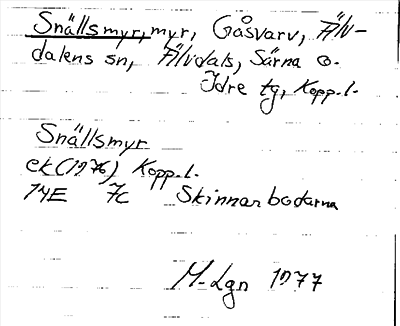 Snällsmyr, myr, Gåsvarv, Älv-
dalens sn, Älvdals, Särna o.
Idre tg, Kopp. l.
Snällsmyr
ek (1976) Kopp. l.
14E 7c Skinnarbodarna
M-Lgn 1977